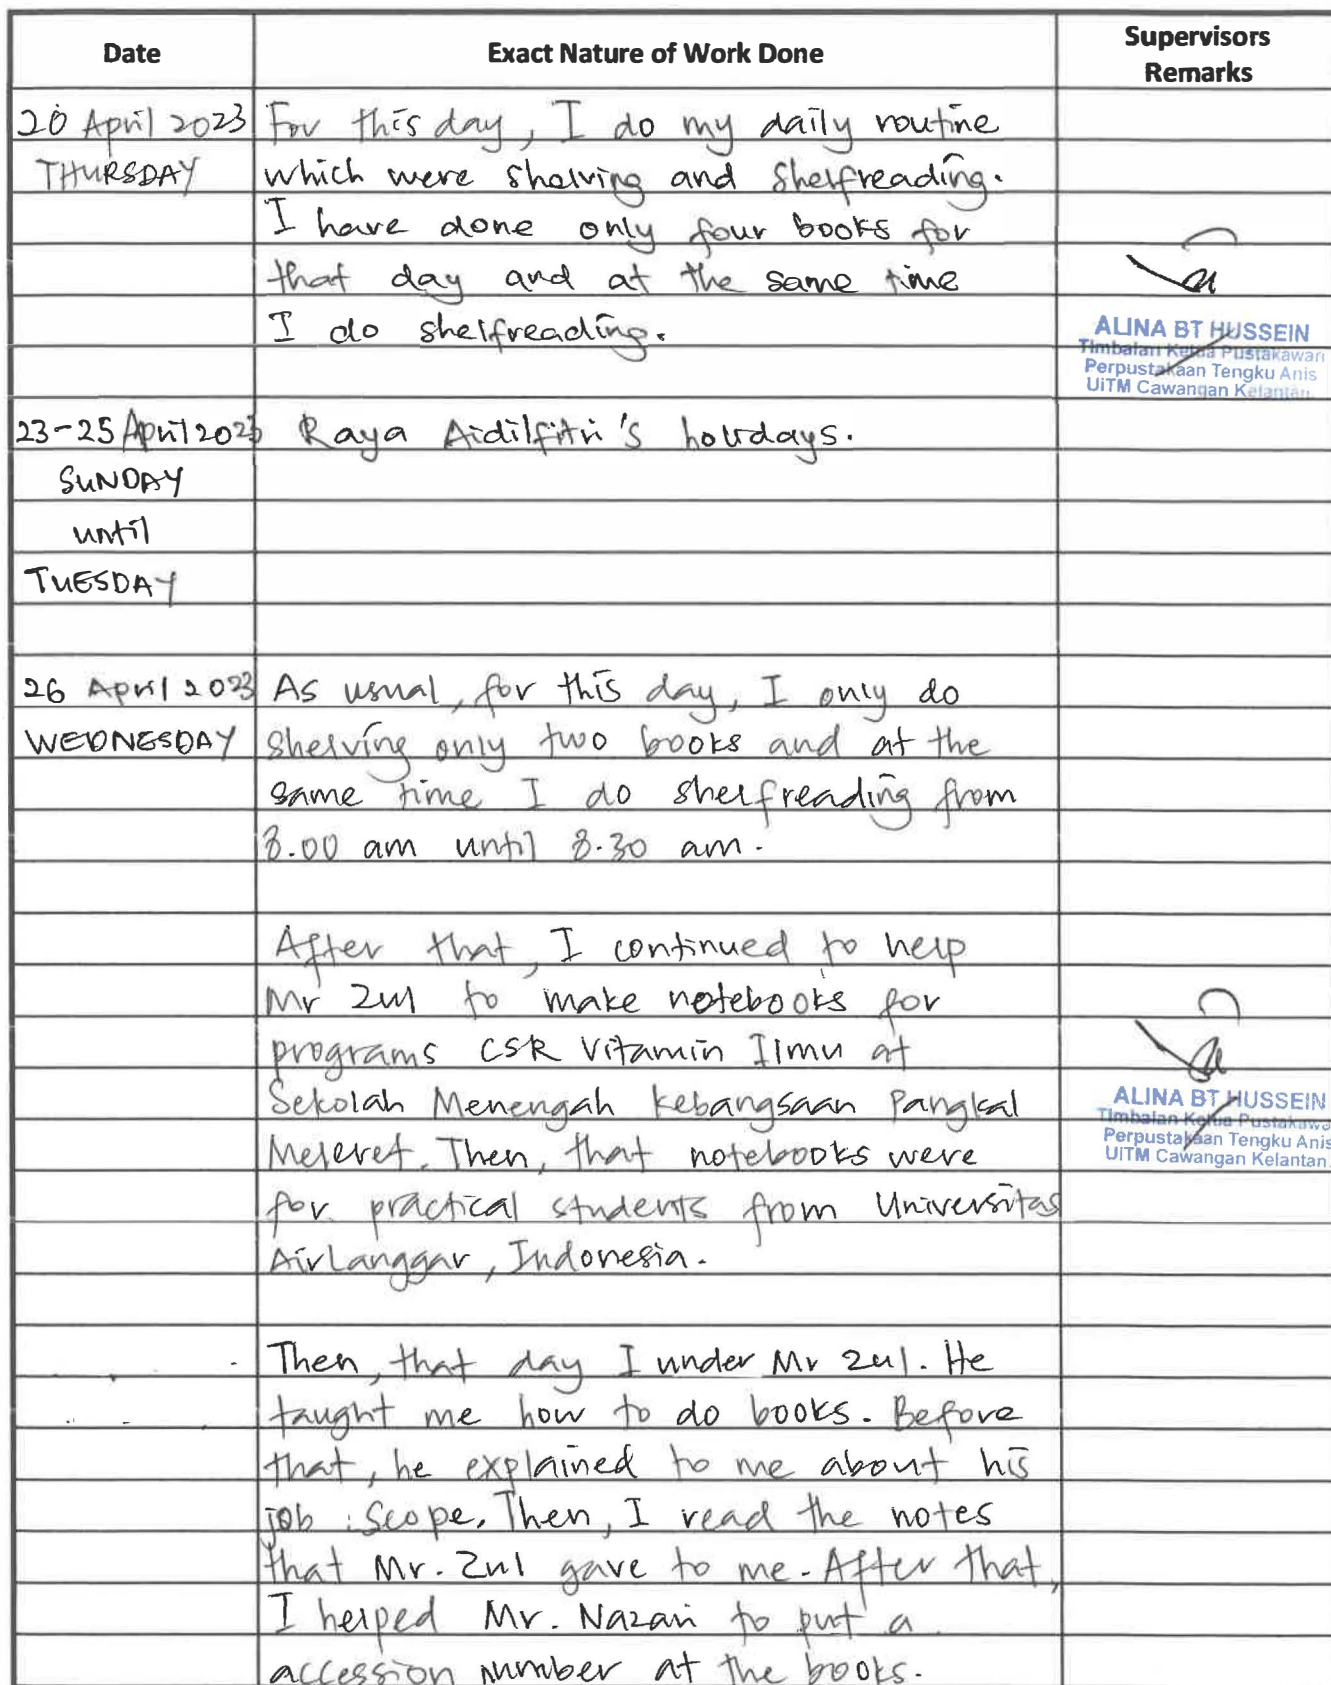 Date
Exact Nature of Work Done
Supervisors
Remarks
20 April 2023
THURSDAY
For this day, I do my daily routine
which were shelving and shelfreading.
I have done only four books for
that day and at the same time
I do shelfreading.
ALINA BT HUSSEIN
Timbalan Ketua Pustakawan
Perpustakaan Tengku Anis
UiTM Cawangan Kelantan.
23-25 April 2023
SUNDAY
until
TUESDAY
Raya Aidilfitri's holidays.
26 April 2023
WEDNESDAY
As usual, for this day, I only do
shelving only two books and at the
same time I do shelfreading from
8.00 am until 8.30 am.
After that, I continued to help
Mr Zul to make notebooks for
programs CSR Vitamin Ilmu at
Sekolah Menengah Kebangsaan Pangkal
Meleret. Then, that notebooks were
for practical students from Universitas
AirLanggar, Indonesia.
ALINA BT HUSSEIN
Timbalan Ketua Pustakawa
Perpustakaan Tengku Anis
UiTM Cawangan Kelantan.
Then, that day I under Mr Zul. He
taught me how to do books. Before
that, he explained to me about his
job scope. Then, I read the notes
that Mr. Zul gave to me. After that,
I helped Mr. Nazari to put a
accession number at the books.